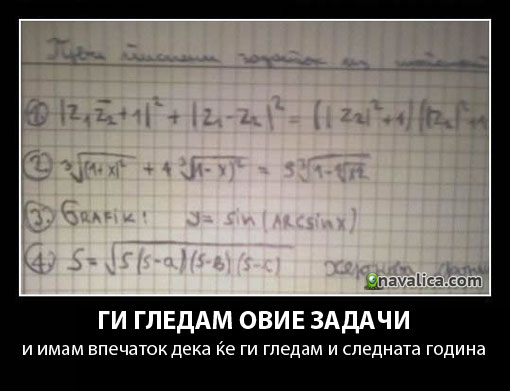 ① |z₁z̄₂+1|² + |z₁-z₂|² = (|z₂|²+1)(|z₂|²+1
② ³√(1+x)² + 4 ³√(1-x)² =
3. GRAFIK: y= sin(ARCsinx)
④ S=√S(s-a)(s-b)(s-c)
navalica.com
ГИ ГЛЕДАМ ОВИЕ ЗАДАЧИ
и имам впечаток дека ќе ги гледам и следната година